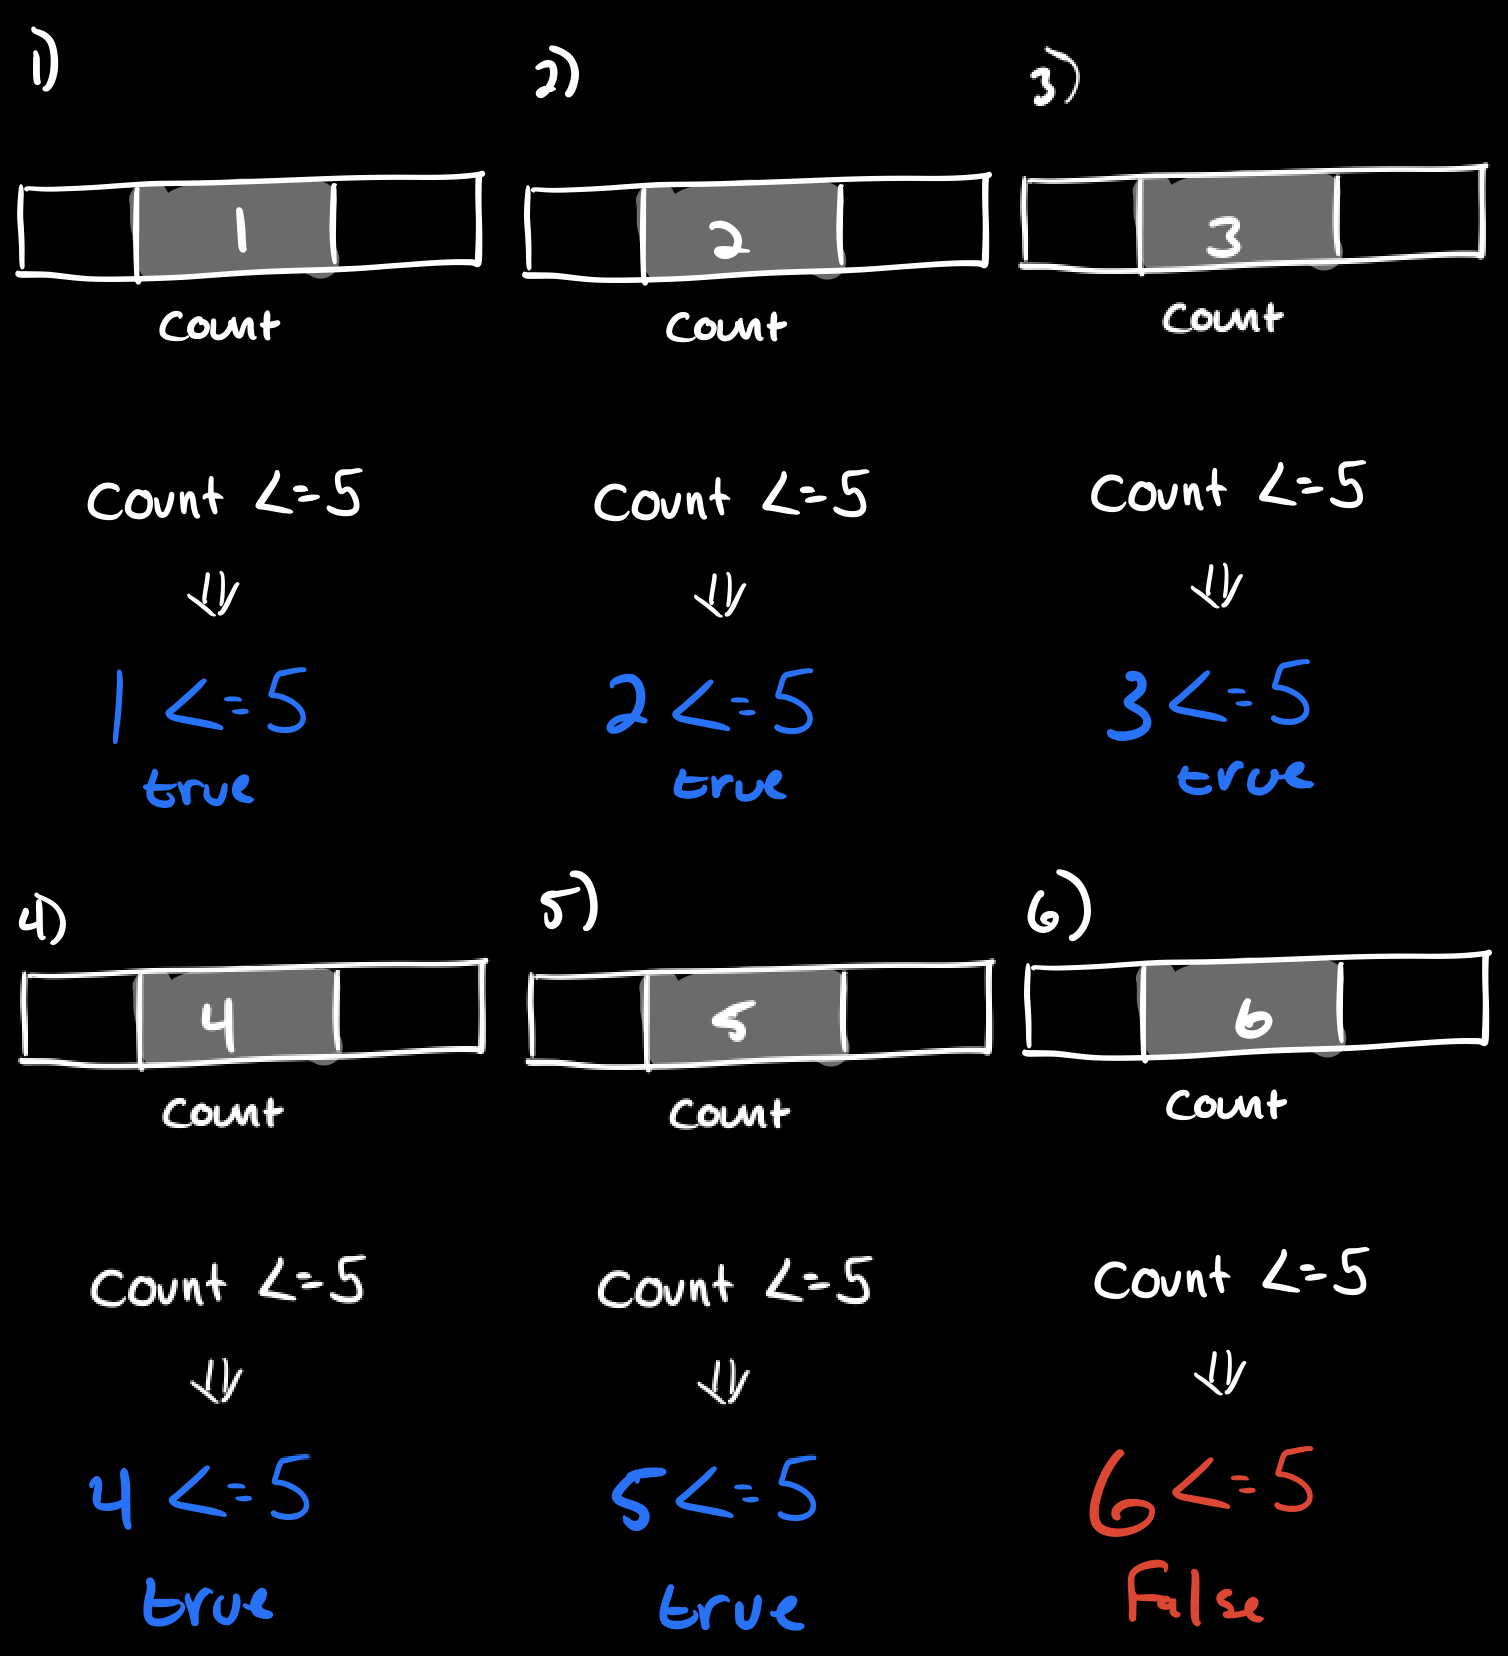 1)
1
Count
Count <=5
⇓
1 <=5
true
2)
2
Count
Count <=5
⇓
2 <=5
true
3)
3
Count
Count <=5
⇓
3 <=5
true
4)
4
Count
Count <=5
⇓
4 <=5
true
5)
5
Count
Count <=5
⇓
5 <=5
true
6)
6
Count
Count <=5
⇓
6 <=5
False